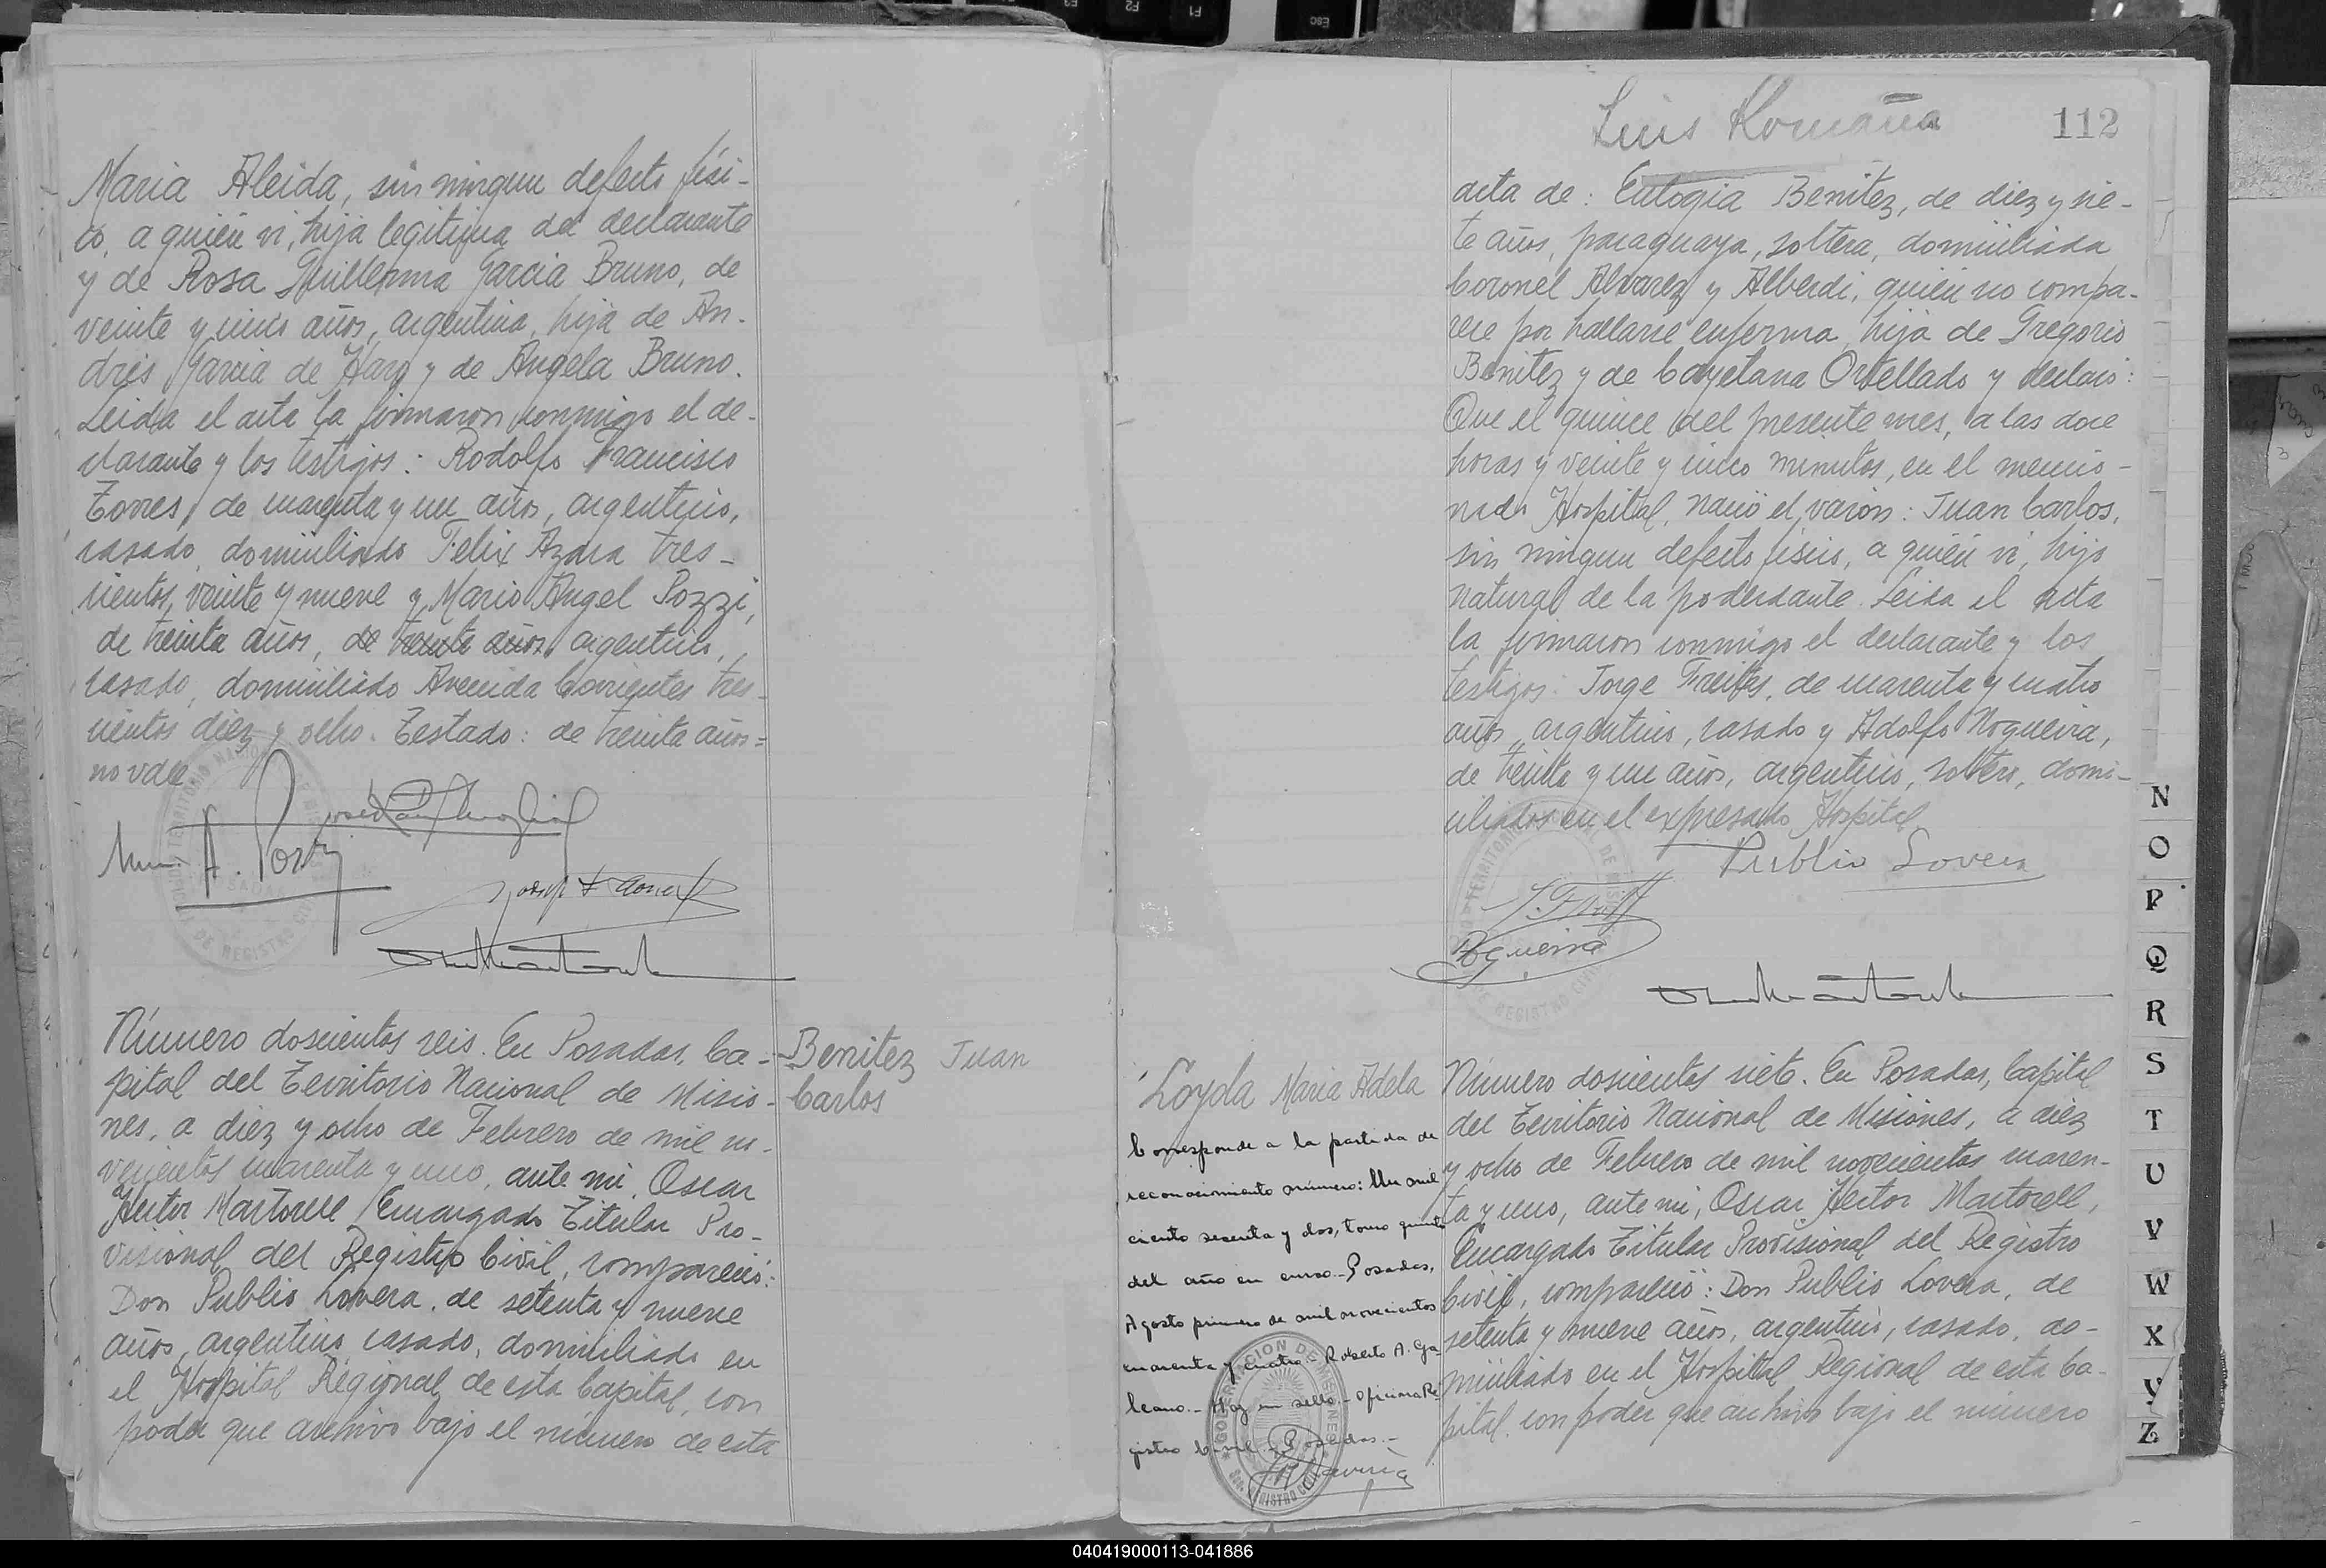 Maria Aleida, sin ningun defecto físi-
co, a quién vi, hija legitima del declarante
y de Rosa Guillerma Garcia Bruno, de
veinte y cinco años, argentina, hija de An-
drés Garcia de Haro y de Angela Bruno.
Leida el acta la firmaron conmigo el de-
clarante y los testigos: Rodolfo Francisco
Torres, de cuarenta y un años, argentino,
casado, domiciliado Felix Azara tres-
cientos, veinte y nueve y Mario Angel Pozzi,
de treinta años, de treinta años, argentino,
casado, domiciliado Avenida Corrientes tres-
cientos diez y ocho. Testado: de treinta años=
no vale
Número doscientos seis. En Posadas, Ca-
pital del Territorio Nacional de Misio-
nes, a diez y ocho de Febrero de mil no-
vecientos cuarenta y uno, ante mi, Oscar
Hector Martorell, Encargado Titular Pro-
visional del Registro Civil, compareció:
Don Publio Lovera, de setenta y nueve
años, argentino casado, domiciliado en
el Hospital Regional de esta Capital, con
poder que archivo bajo el número de esta
Benitez Juan
Carlos
Luis Romaña
112
acta de: Eulogia Benitez, de diez y sie-
te años, paraguaya, soltera, domiciliada
Coronel Alvarez y Alberdi, quién no compa-
rece por hallarse enferma, hija de Gregorio
Benitez y de Cayetana Ortellado y declaró:
Que el quince del presente mes, a las doce
horas y veinte y cinco minutos, en el mencio-
nado Hospital, nació el varón: Juan Carlos,
sin ningun defecto físico, a quién vi, hijo
natural de la poderdante. Leida el acta
la firmaron conmigo el declarante y los
testigos: Jorge Freites, de cuarenta y cuatro
años, argentino, casado y Adolfo Nogueira,
de treinta y un años, argentino, soltero, domi-
ciliados en el expresado Hospital
Publio Lovera
Loyola Maria Adela
Corresponde a la partida de
reconocimiento número: Un mil
ciento sesenta y dos, tomo quinto
del año en curso.- Posadas,
Agosto primero de mil novecientos
cuarenta y cuatro.- Roberto A. Ga-
leano.- Hay un sello.- Oficina Re-
gistro Civil.- Posadas.-
GOBERNACION DE MISIONES
Número doscientos siete. En Posadas, Capital
del Territorio Nacional de Misiones, a diez
y ocho de Febrero de mil novecientos cuaren-
ta y uno, ante mi, Oscar Hector Martorell,
Encargado Titular Provisional del Registro
Civil, compareció: Don Publio Lovera, de
setenta y nueve años, argentino, casado, do-
miciliado en el Hospital Regional de esta Ca-
pital, con poder que archivo bajo el número
N
O
P
Q
R
S
T
U
V
W
X
Y
Z
040419000113-041886